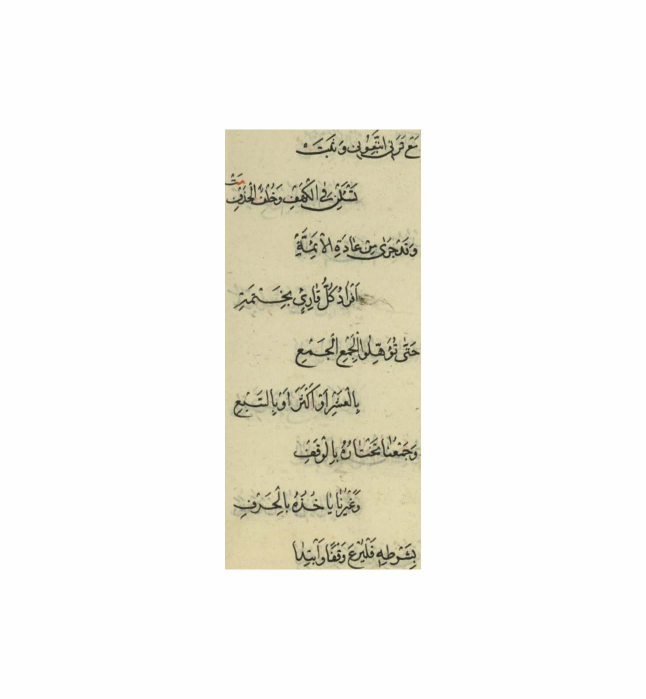 مَعْ تَرَنِي اتَّبِعُونِي وَثَبَتْ
تَسْأَلَنِّ فِي الْكَهْفِ وَخُلْفُ الْحَذْفِ مَتْ
وَقَدْ جَرَى مِنْ عَادَةِ الْأَئِمَّةِ
اَفْرَادُ كُلِّ قَارِئٍ بِخَتْمَةِ
حَتَّى تُؤَهِّلُوا لِجَمْعِ الْجَمْعِ
بِالْعَشْرِ اَوْ اَكْثَرَ اَوْ بِالسَّبْعِ
وَجَمْعُنَا نَخْتَارُهُ بِالْوَقْفِ
وَغَيْرُنَا يَاخُذُهُ بِالْحَرْفِ
بِشَرْطِهِ فَلْيَرْعَ وَقْفًا وَابْتِدَا